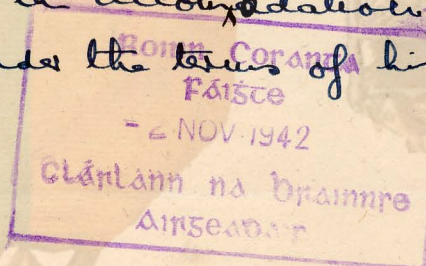 accommodation
the terms of hi
Roinn Cosanta
Fáiġte
- 2 NOV 1942
Clárlann na Brainnse
Airgeadais